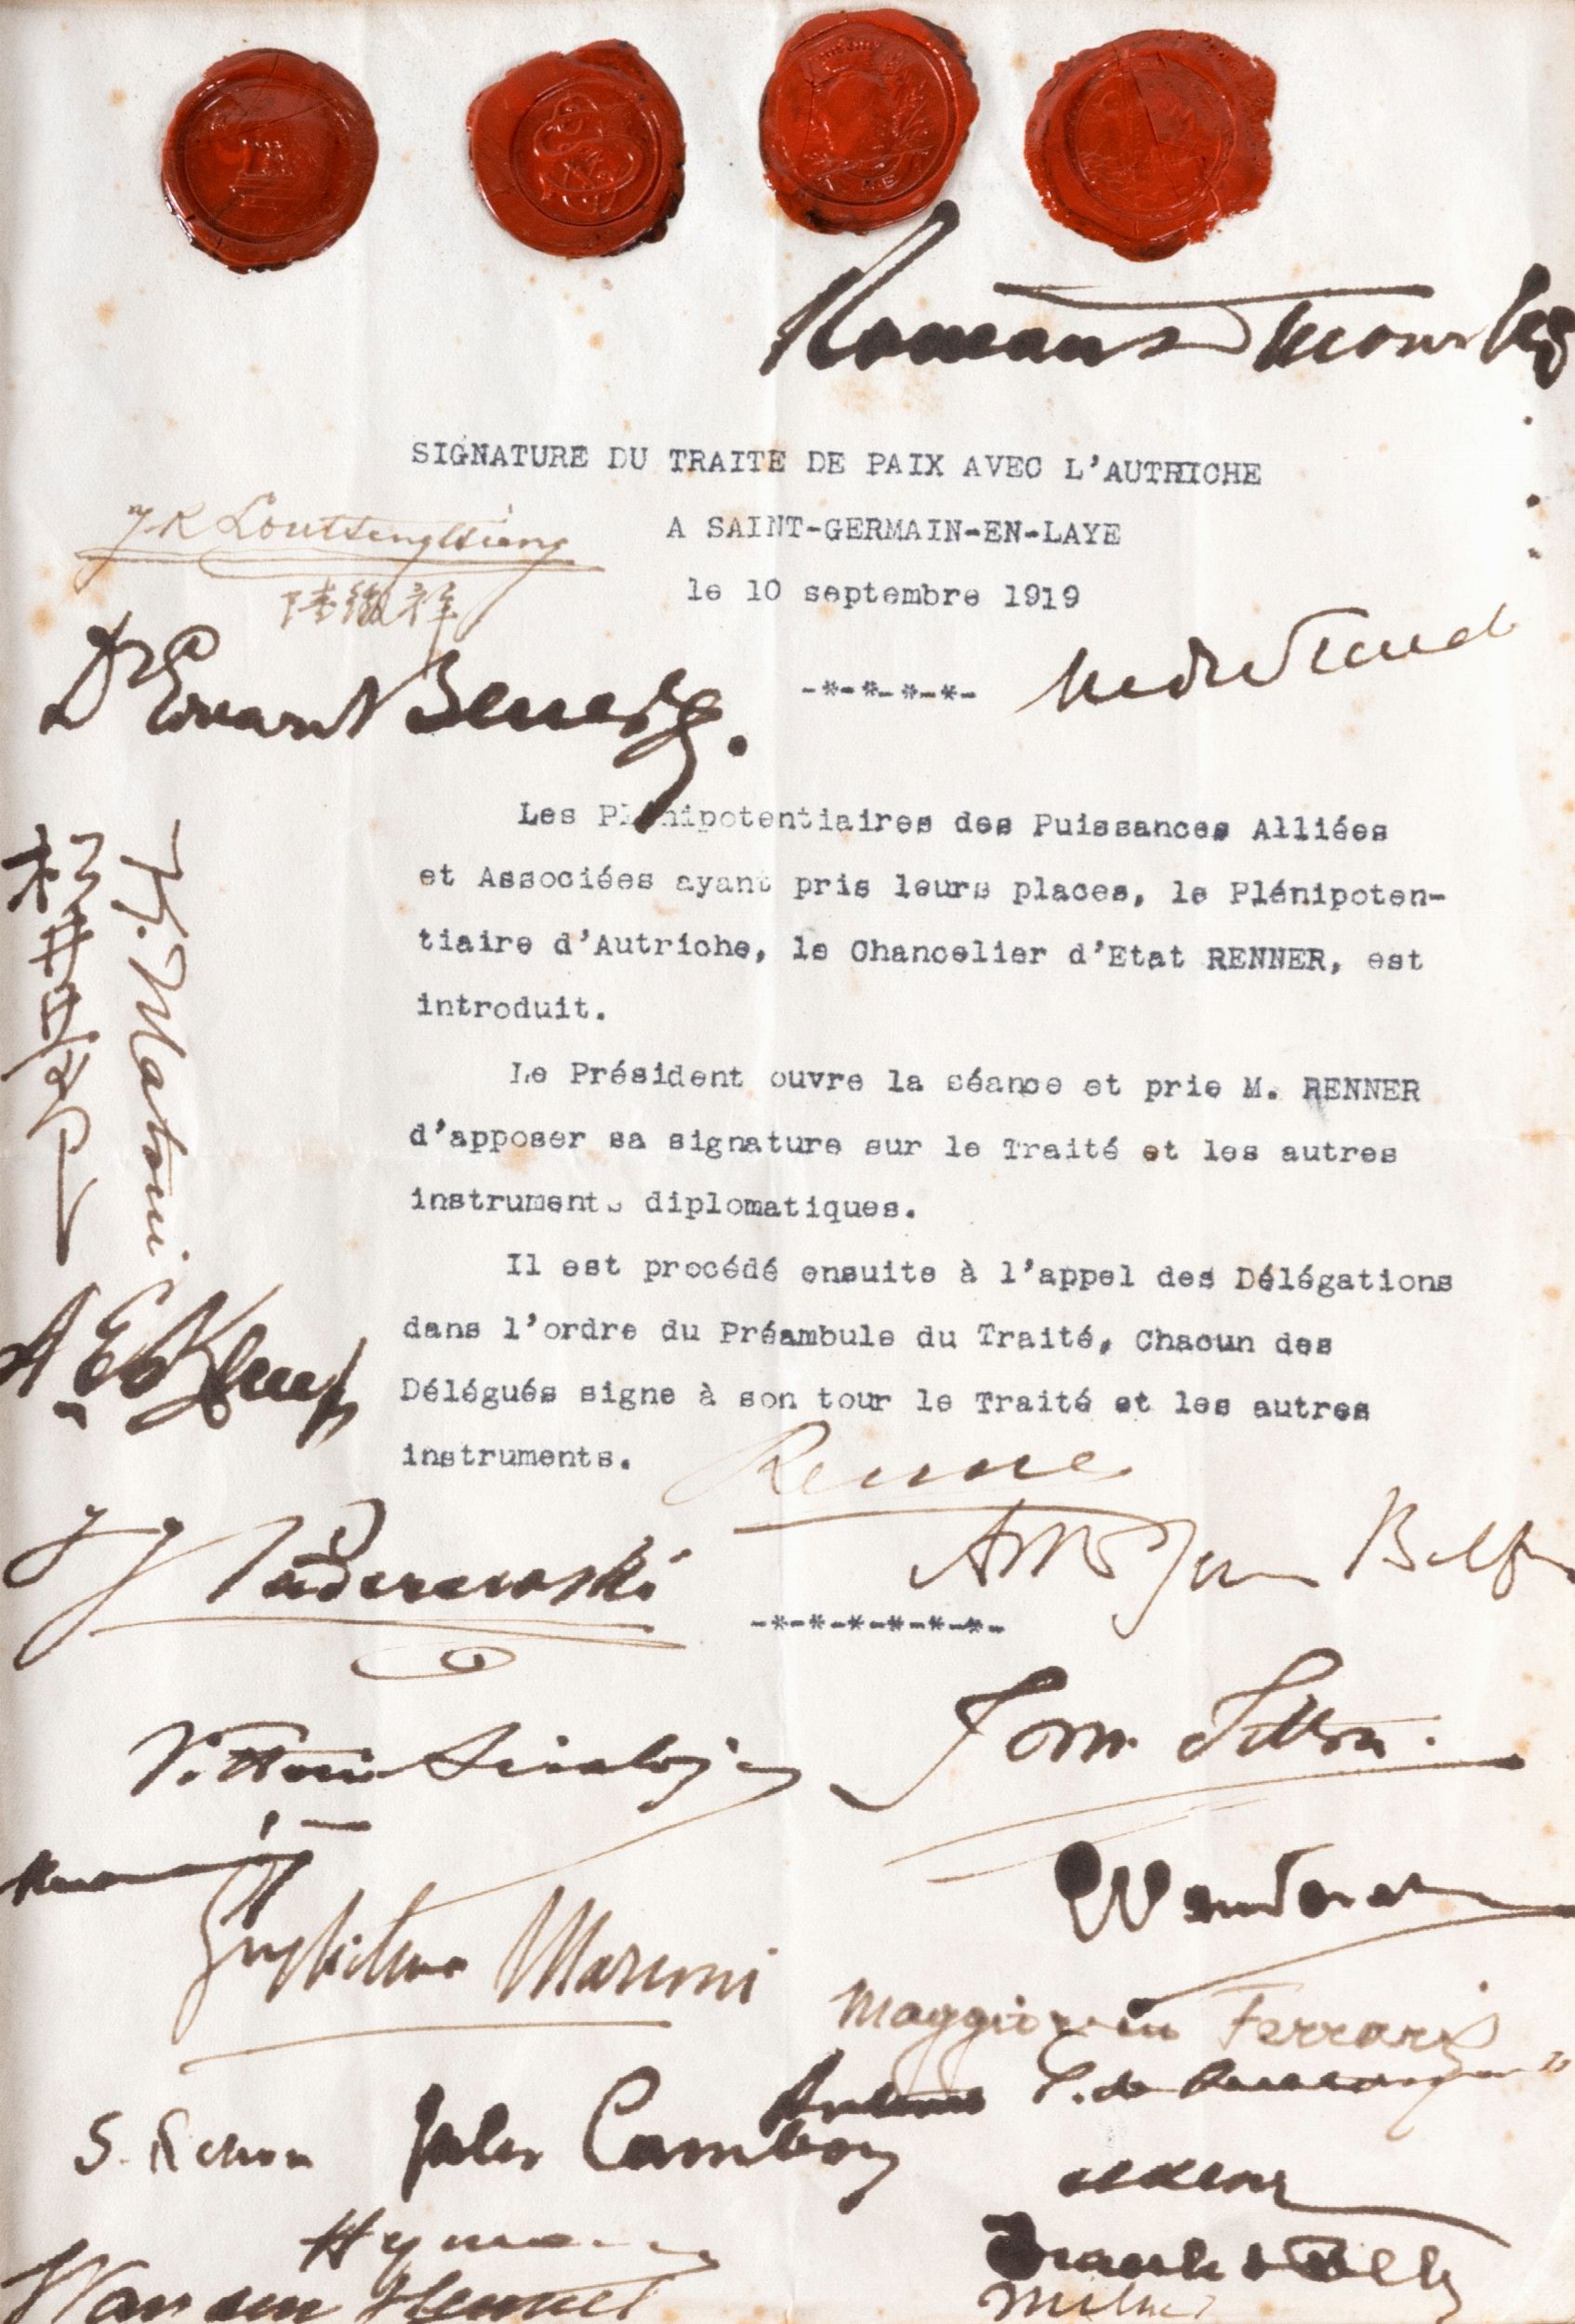 SIGNATURE DU TRAITE DE PAIX AVEC L'AUTRICHE
J R Loutsengtsiang
A SAINT-GERMAIN-EN-LAYE
陸徵祥
le 10 septembre 1919
Dr Edvard Beneš.
-*-*-*-*-
Les Plénipotentiaires des Puissances Alliées
et Associées ayant pris leurs places, le Plénipoten-
tiaire d'Autriche, le Chancelier d'Etat RENNER, est
introduit.
Le Président ouvre la séance et prie M. RENNER
d'apposer sa signature sur le Traité et les autres
instruments diplomatiques.
K. Matsui
松井慶四郎
Il est procédé ensuite à l'appel des Délégations
dans l'ordre du Préambule du Traité, Chacun des
Délégués signe à son tour le Traité et les autres
instruments.
A. E. Kemp
Renner
Arthur James Balfour
J J Paderewski
-*-*-*-*-*-*-
Vittorio Scialoja
Tom. Tittoni.
Guglielmo Marconi
Maggiorino Ferraris
S. Pichon
Jules Cambon
Hymans
Van den Heuvel
Frank L Polk
Milner